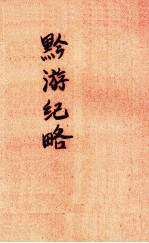 黔游纪略